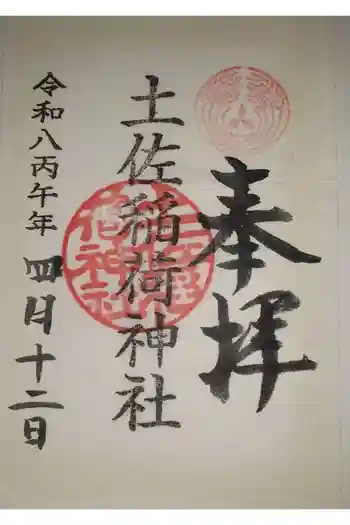 奉拝
土佐稲荷神社
令和八丙午年 四月十二日